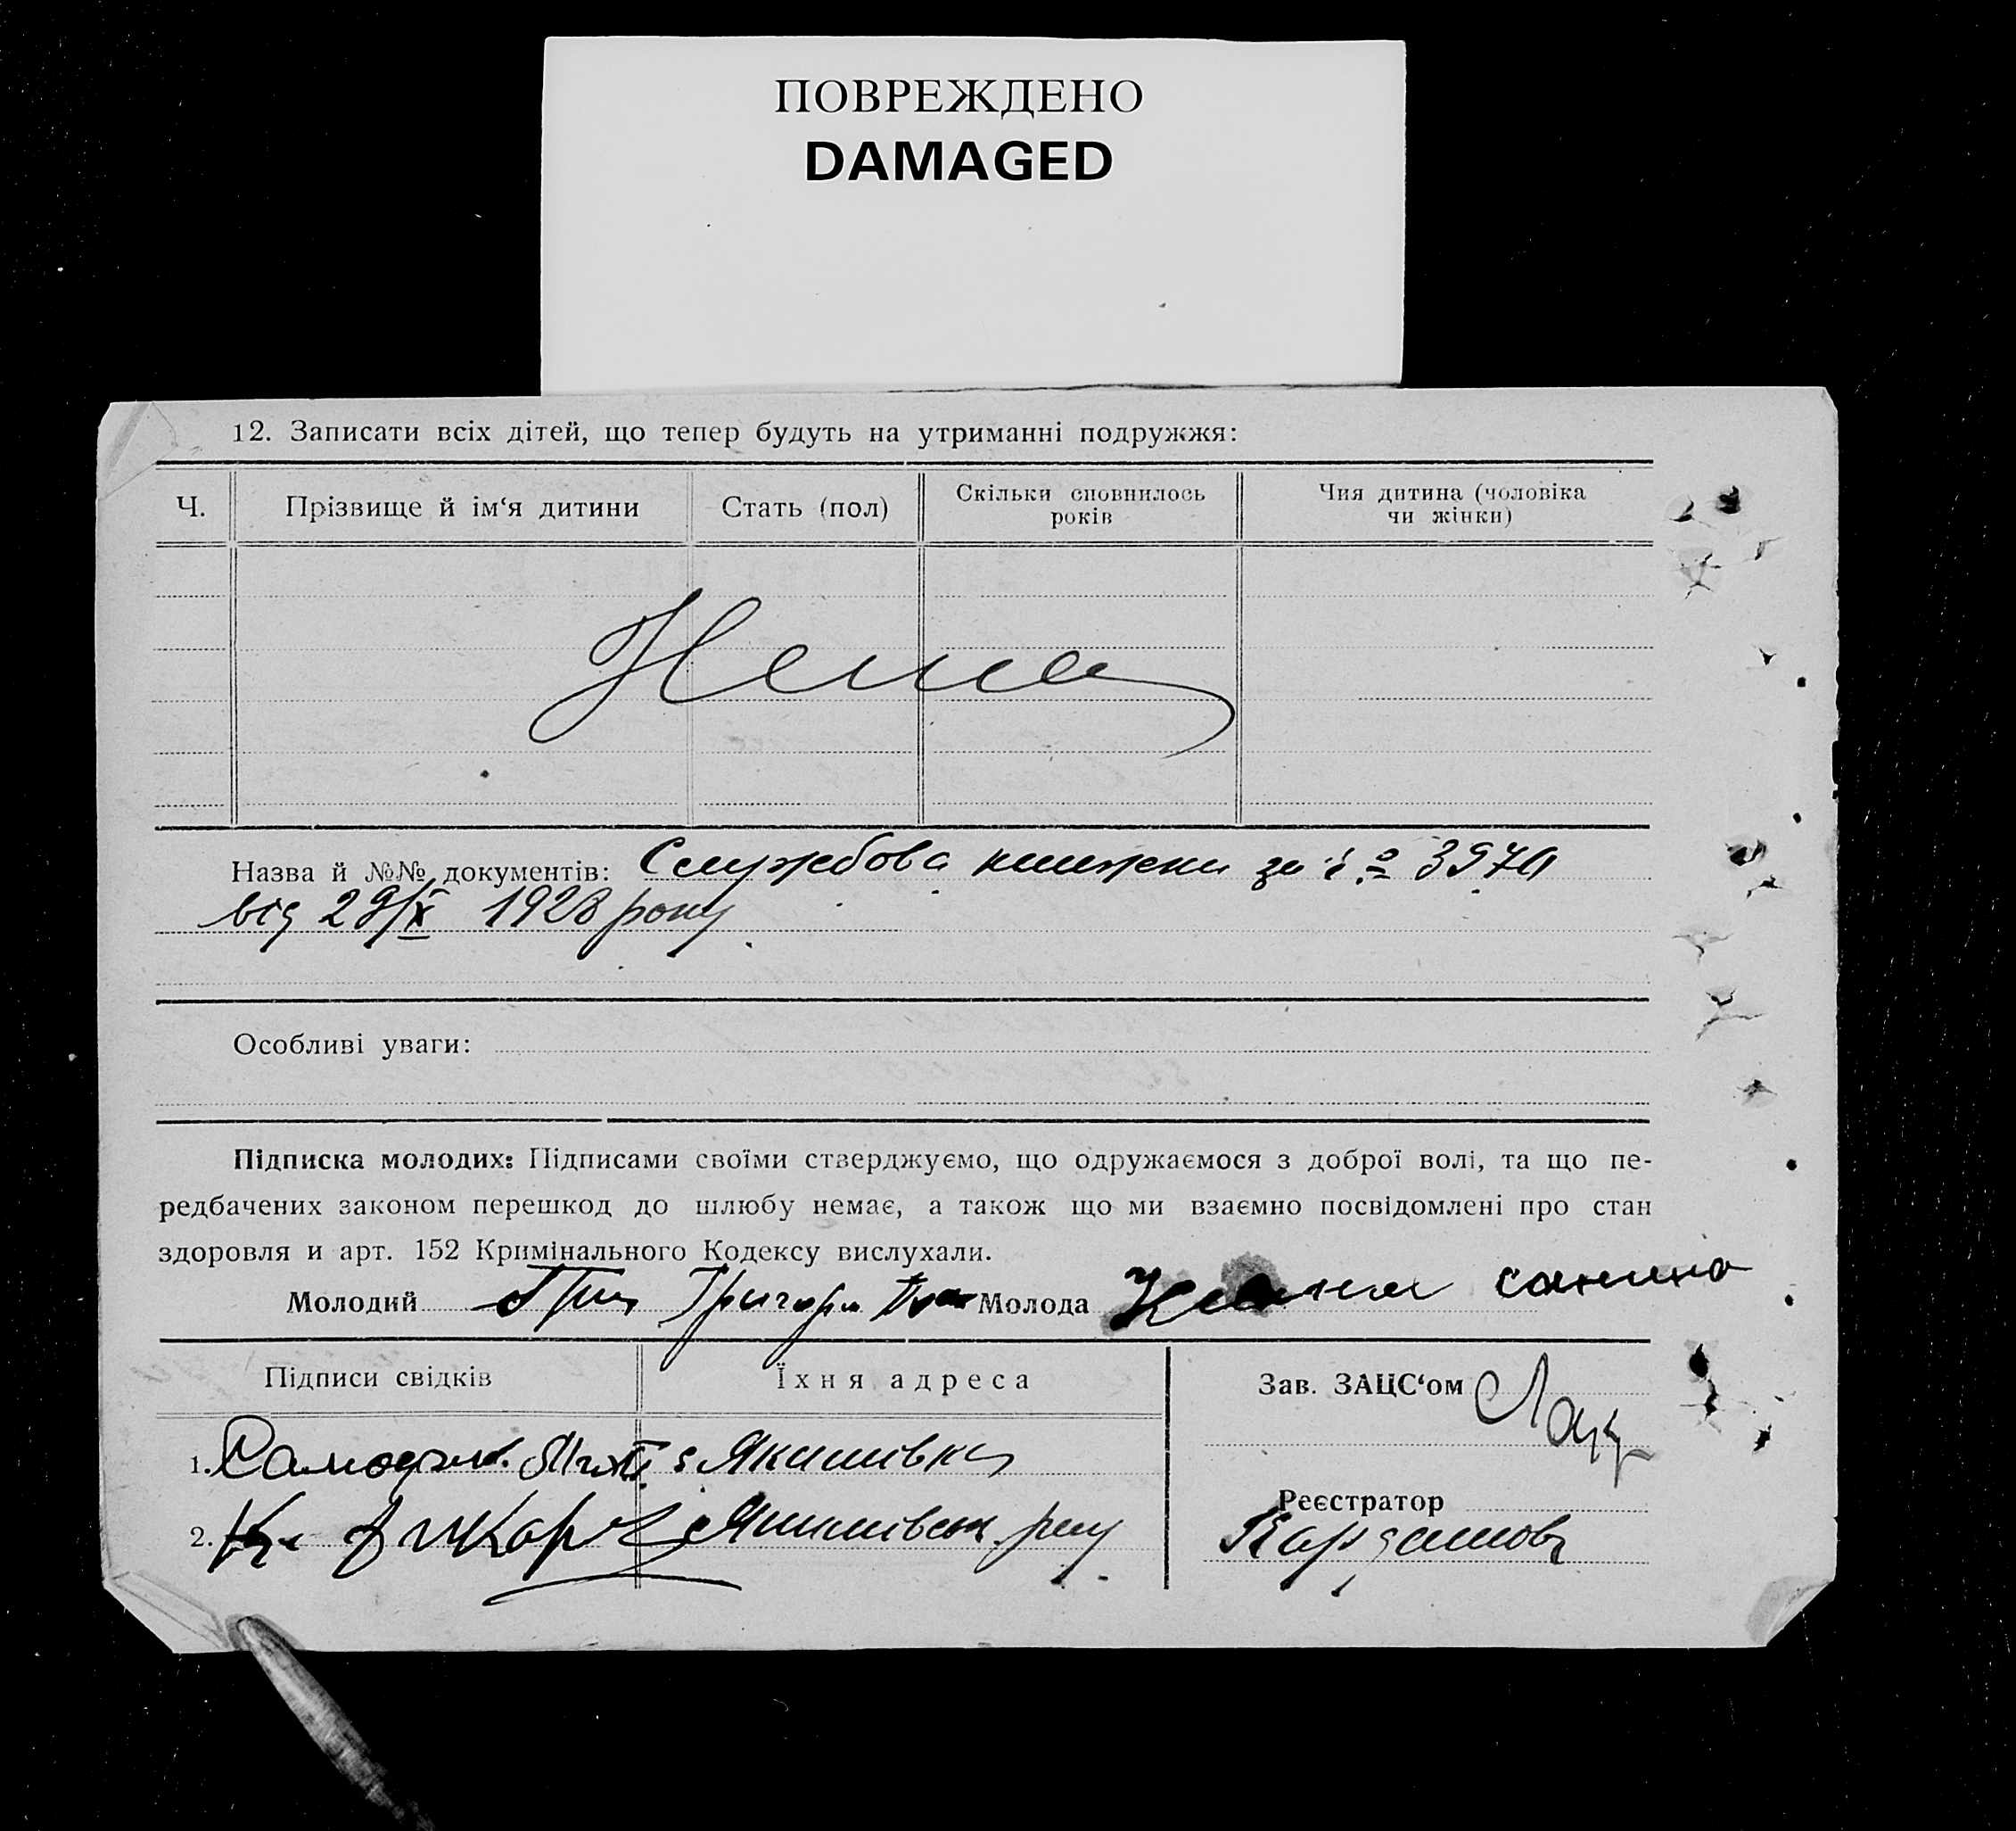 ПОВРЕЖДЕНО
DAMAGED
12. Записати всіх дітей, що тепер будуть на утриманні подружжя:
Ч. Прізвище й ім‘я дитини Стать (пол) Скільки сповнилось років Чия дитина (чоловіка чи жінки)
Нема
Назва й №№ документів: Службова книжка за
від 29/X 1928 року
Особливі уваги:
Підписка молодих: Підписами своїми стверджуємо, що одружаємося з доброї волі, та що пе-
редбачених законом перешкод до шлюбу немає, а також що ми взаємно посвідомлені про стан
здоровля и арт. 152 Кримінального Кодексу вислухали.
Молодий Молода
Підписи свідків Їхня адреса Зав. ЗАЦС‘ом
1.
Реєстратор
2.